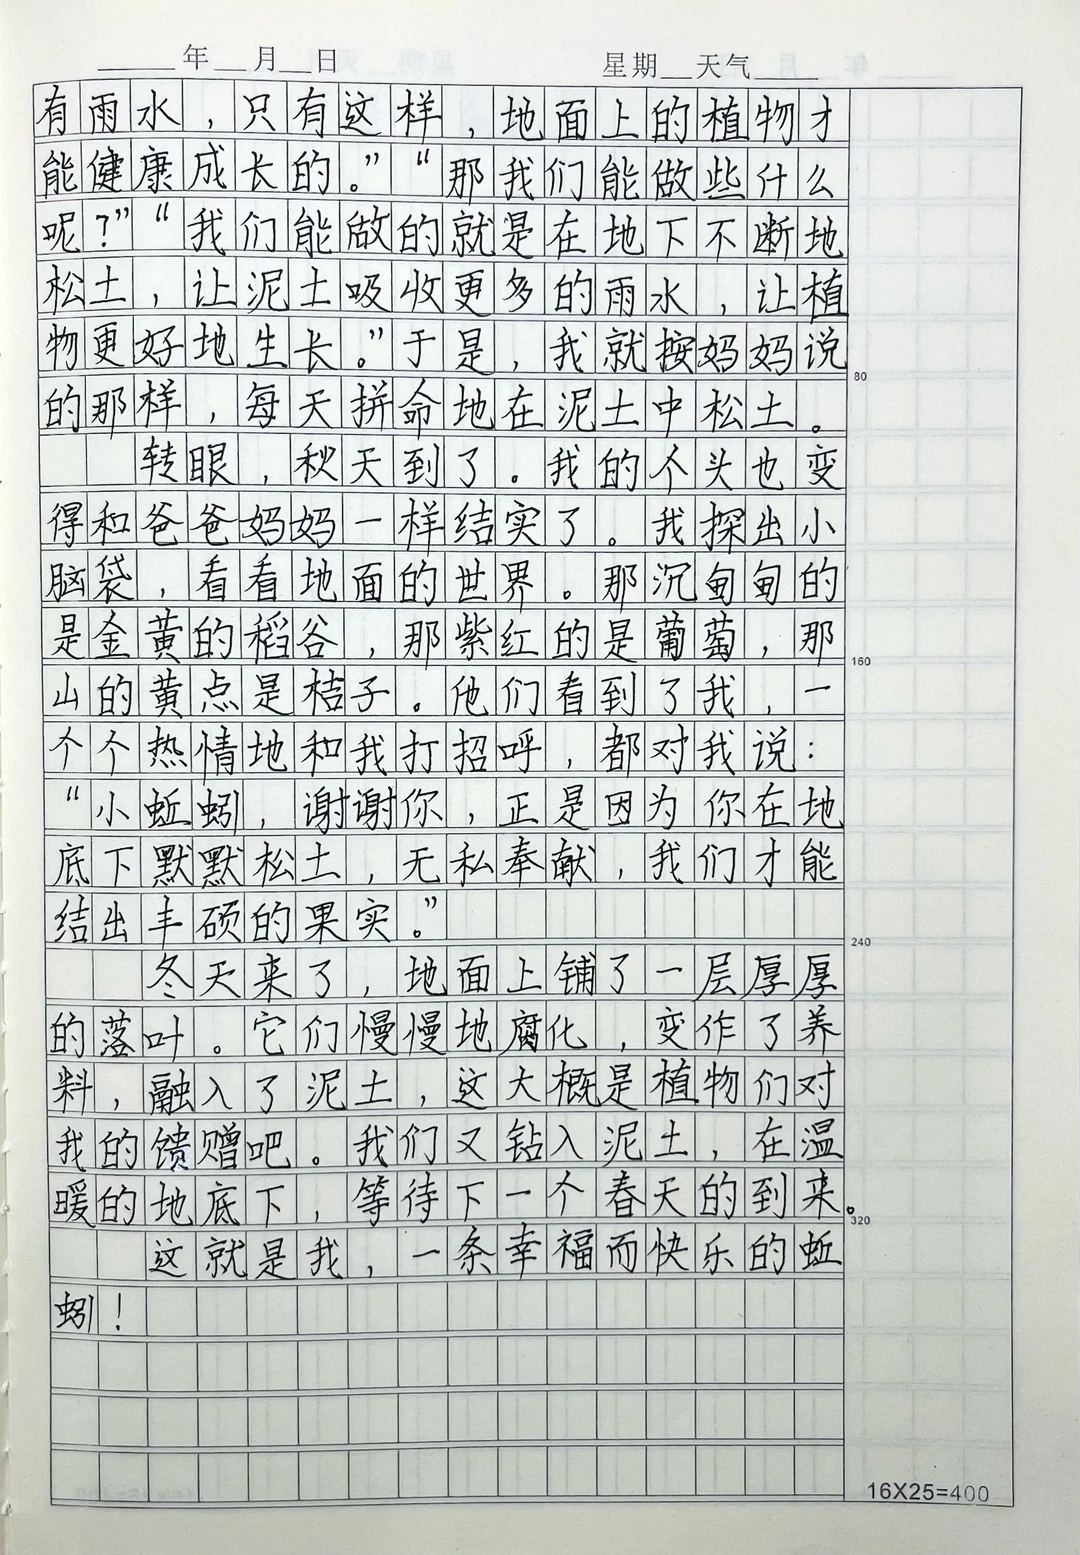 ____年__月__日 星期__天气____
有雨水，只有这样，地面上的植物才
能健康成长的。”“那我们能做些什么
呢？”“我们能做的就是在地下不断地
松土，让泥土吸收更多的雨水，让植
物更好地生长。”于是，我就按妈妈说
的那样，每天拼命地在泥土中松土。
转眼，秋天到了。我的个头也变
得和爸爸妈妈一样结实了。我探出小
脑袋，看看地面的世界。那沉甸甸的
是金黄的稻谷，那紫红的是葡萄，那
山的黄点是桔子。他们看到了我，一
个个热情地和我打招呼，都对我说：
“小蚯蚓，谢谢你，正是因为你在地
底下默默松土，无私奉献，我们才能
结出丰硕的果实。”
冬天来了，地面上铺了一层厚厚
的落叶。它们慢慢地腐化，变作了养
料，融入了泥土，这大概是植物们对
我的馈赠吧。我们又钻入泥土，在温
暖的地底下，等待下一个春天的到来。
这就是我，一条幸福而快乐的蚯
蚓！
80
160
240
320
16X25=400